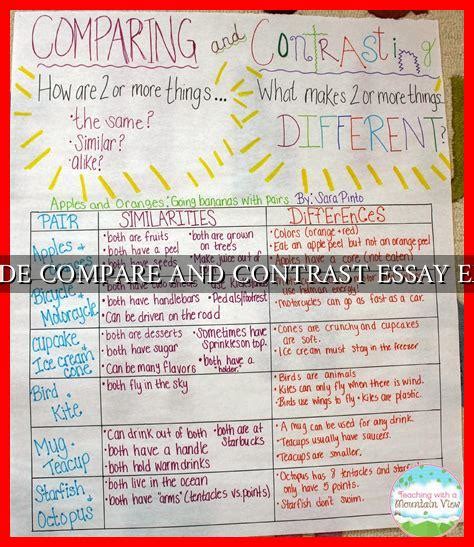 COMPARING and CONTRASTING
How are 2 or more things...
• the same?
• Similar?
• alike?
What makes 2 or more things
DIFFERENT?
Apples and Oranges: Going bananas with pairs By: Sara Pinto
PAIR
SIMILARITIES
DiFFErENCeS
Apples
• both are fruits
• both have a peel
• both have seeds
• both are grown
on trees
• Make juice out of
• Colors (orange + red)
• Eat an apple peel but not an orange peel
• Apples have a core (not eaten)
DE COMPARE AND CONTRAST ESSAY E
Bicycle +
Motorcycle
• both have handlebars
• Pedals/footrest
• Can be driven on the road
use human energy!
• Motorcycles can go as fast as a car.
Cupcake
+
Ice cream
cone
• both are desserts
• both have sugar
• Can be many flavors
• Sometimes have
Sprinkles on top.
• both have a
"holder"
• Cones are crunchy and cupcakes
are soft.
• Ice cream must stay in the freezer
Bird
+
Kite
• both fly in the sky
• Birds are animals
• Kites can only fly when there is wind.
• Birds use wings to fly • kites are plastic.
Mug +
Teacup
• Can drink out of both
• both have a handle
• both hold warm drinks
• both are at
Starbucks
• A mug can be used for any drink.
• Teacups usually have saucers.
• Teacups are smaller.
Starfish +
Octopus
• both live in the ocean
• both have "arms" (tentacles vs. points)
• Octopus has 8 tentacles and starfish
only have 5 points.
• Starfish don't swim.
Teaching with a
Mountain View